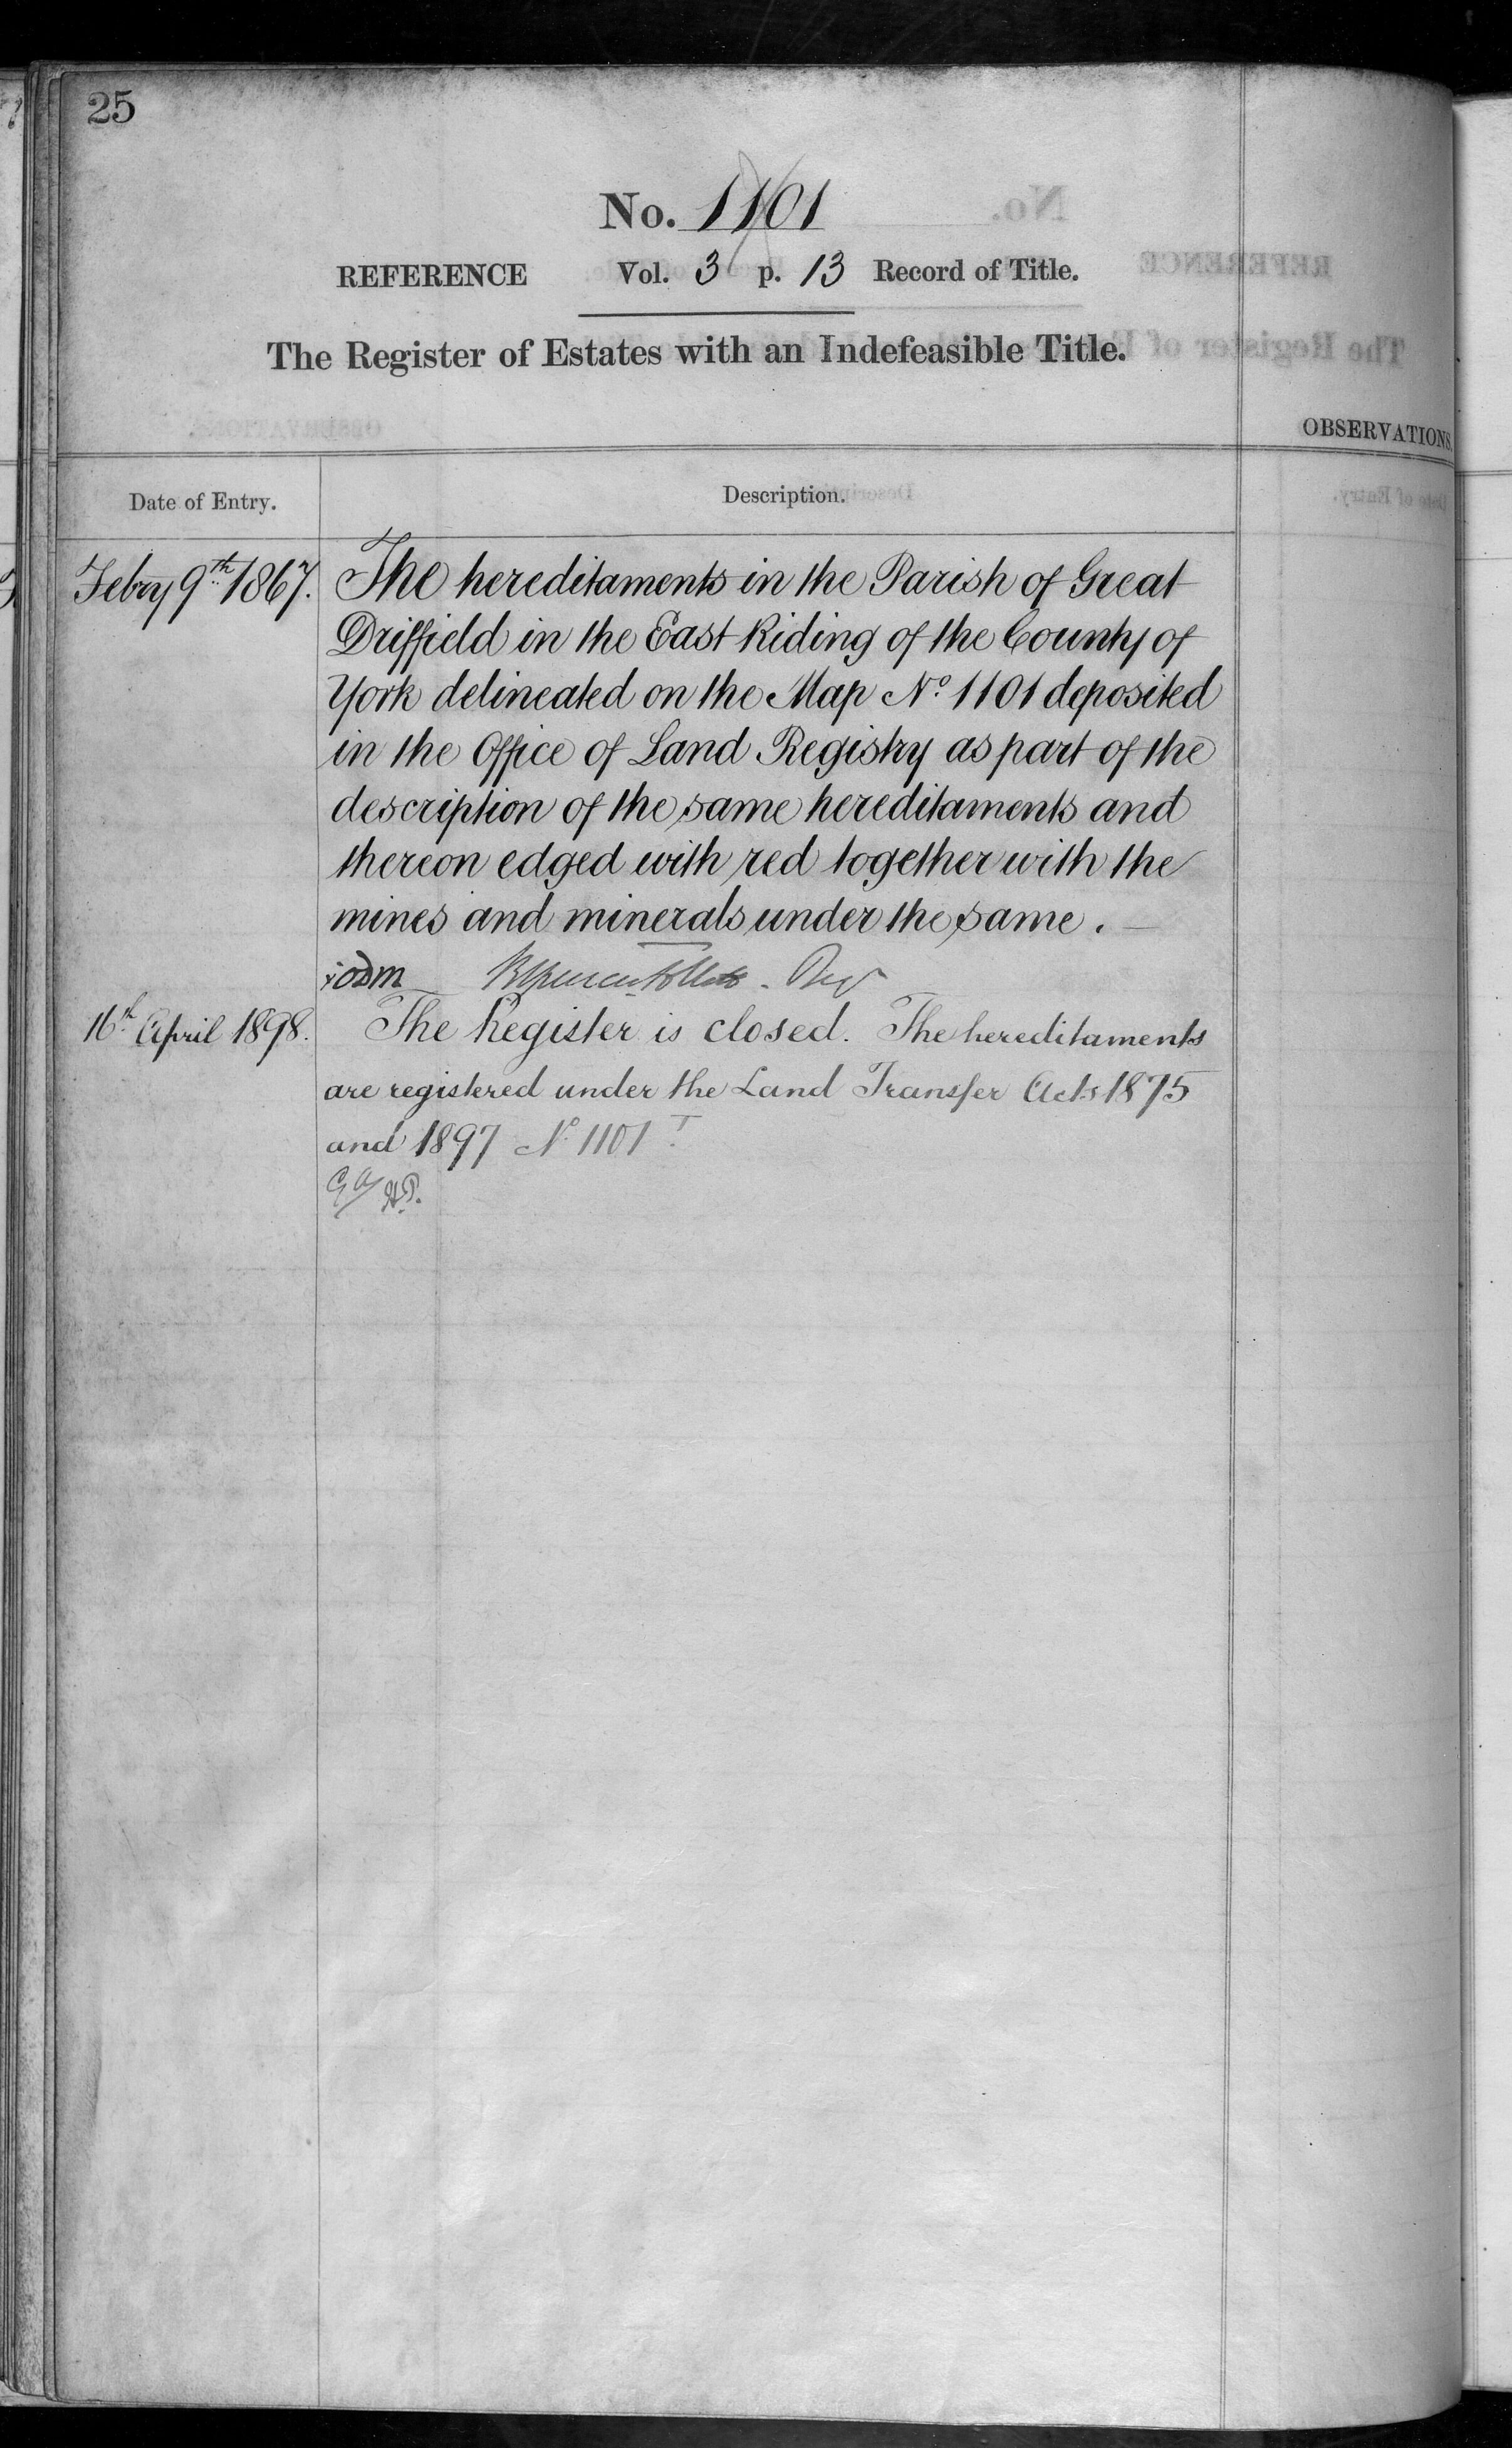 25
No. 1101
REFERENCE Vol. 3 p. 13 Record of Title.
The Register of Estates with an Indefeasible Title.
OBSERVATIONS.
Date of Entry.
Description.
Febry 9th 1867.
The hereditaments in the Parish of Great
Driffield in the East Riding of the County of
York delineated on the Map No. 1101 deposited
in the Office of Land Registry as part of the
description of the same hereditaments and
thereon edged with red together with the
mines and minerals under the same.
16th April 1898.
The Register is closed. The hereditaments
are registered under the Land Transfer Acts 1875
and 1897 No. 1101 T
H.P.